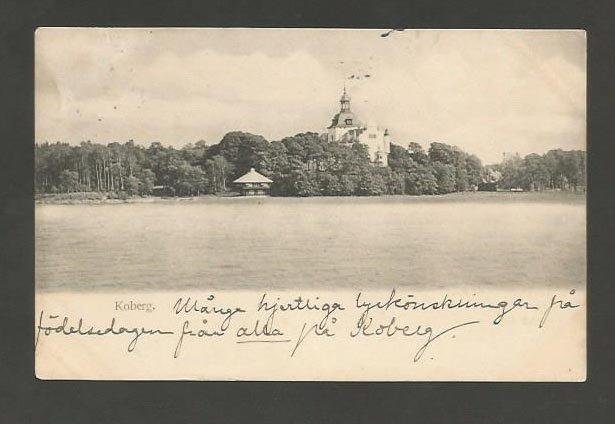 Koberg. Många hjertliga lyckönskningar på
födelsedagen från alla på Koberg